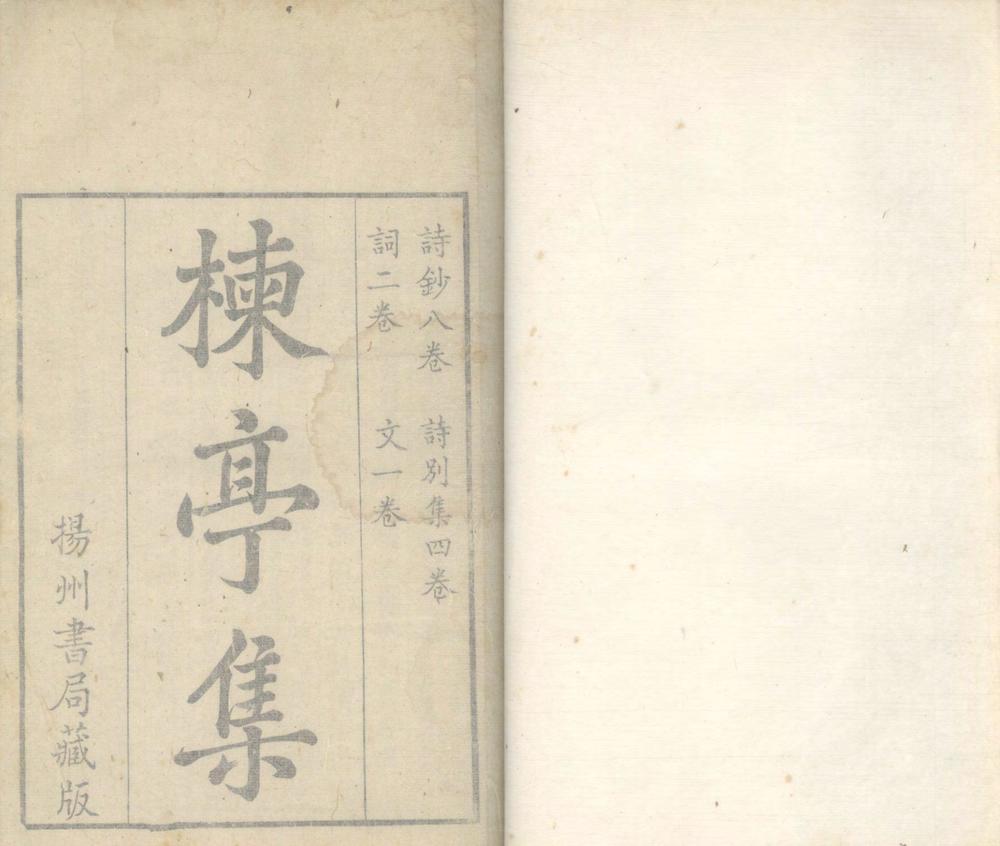 詩鈔八卷　詩別集四卷
詞二卷　文一卷
楝亭集
揚州書局藏版